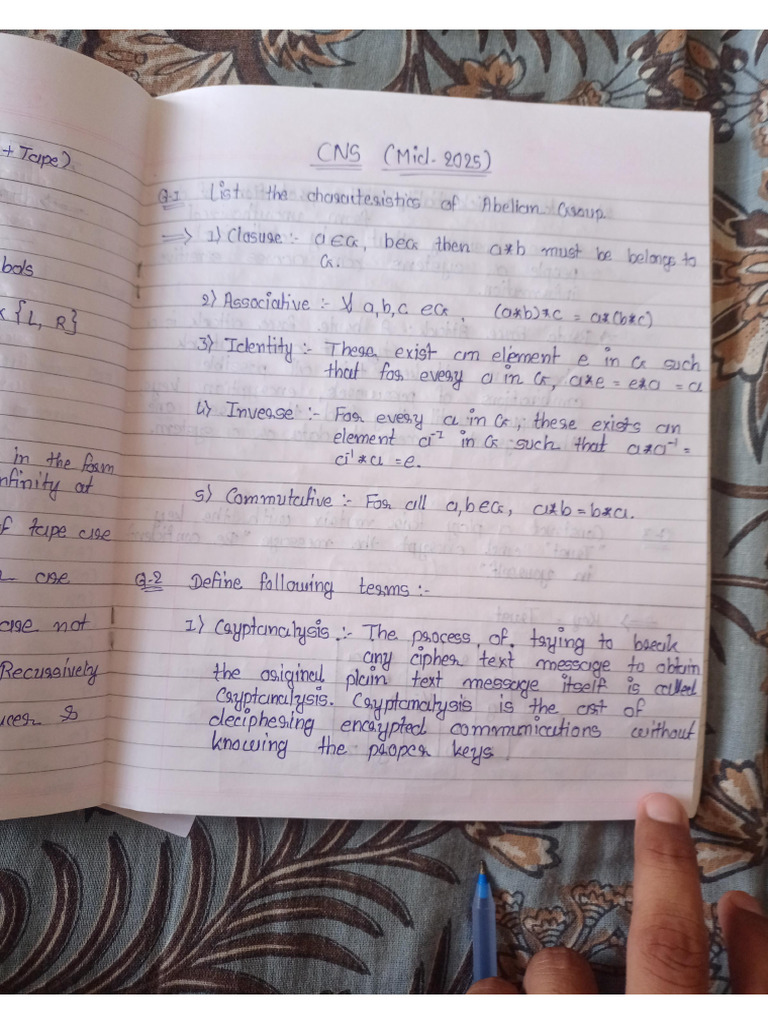 + Tape).
bols
{L, R}
in the form
nfinity at
f tape are
are
are not
Recursively
ucer &
CNS (Mid-2025)
Q-1 List the characteristics of Abelian Group.
=> 1) Closure :- a∈G, b∈G then a*b must be belongs to
G.
2) Associative :- ∀ a,b,c ∈G, (a*b)*c = a*(b*c)
3) Identity :- There exist an element e in G such
that for every a in G, a*e = e*a = a
4) Inverse :- For every a in G, there exists an
element a⁻¹ in G such that a*a⁻¹ =
a⁻¹*a = e.
5) Commutative :- For all a,b∈G, a*b = b*a.
Q-2 Define following terms :-
1) Cryptanalysis :- The process of trying to break
any cipher text message to obtain
the original plain text message itself is called
Cryptanalysis. Cryptanalysis is the art of
deciphering encrypted communications without
knowing the proper keys.